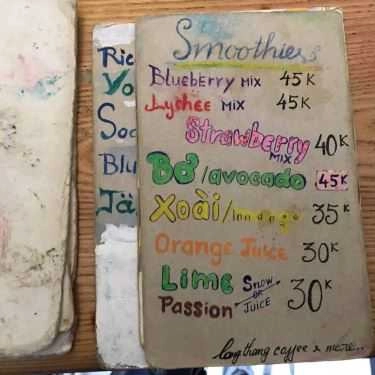 Smoothies
Blueberry MIX 45K
Lyshee MIX 45K
Strawberry MIX 40K
Bơ/avocado 45K
Xoài/ 35K
Orange Juice 30K
Lime Snow
Passion OR JUICE 30K
Ric
Yo
Soc
Blu
Jä
long thang coffee & more...